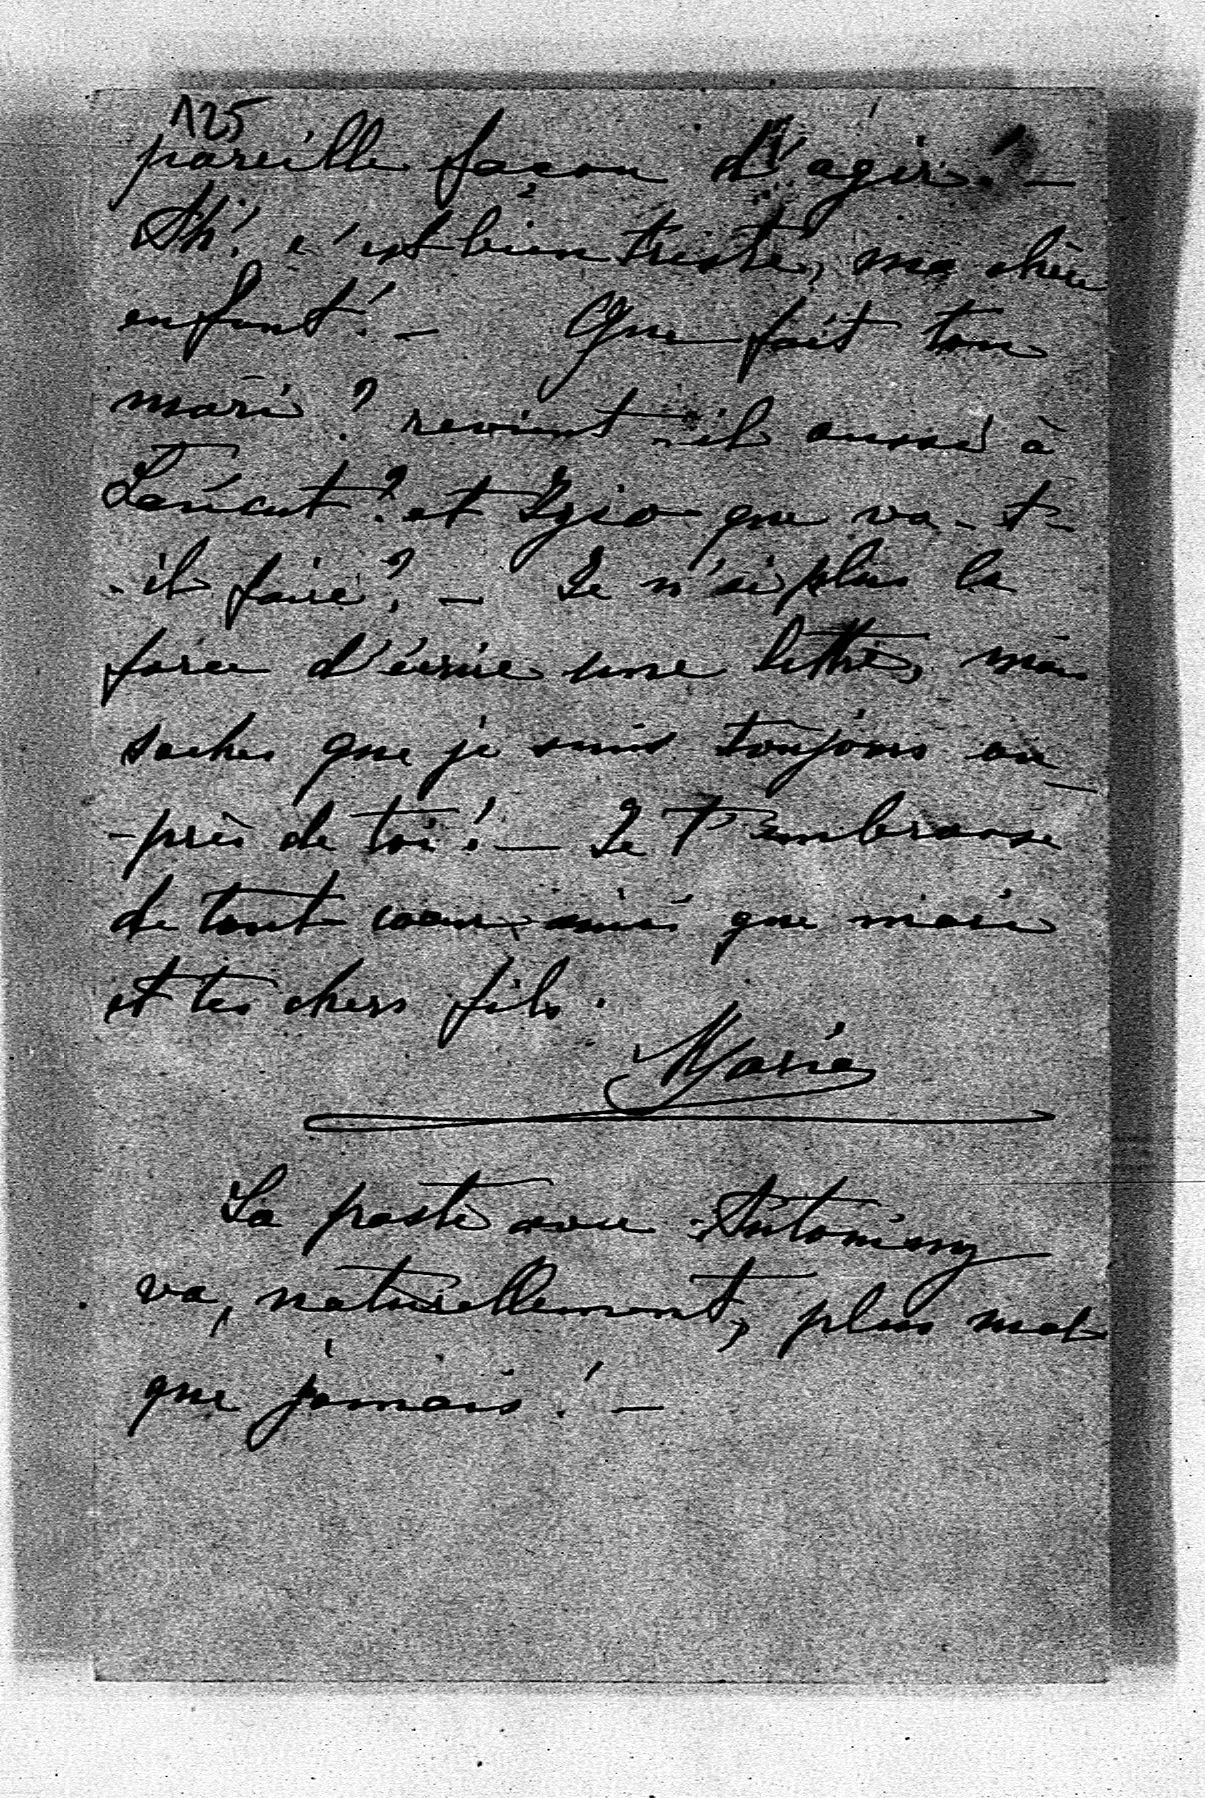 125
pareille façon d'agir! —
Ah! c'est bien triste, ma chère
enfant! — Que fait ton
mari? revient-il aussi à
Łańcut? et Izio que va-t-
-il faire? — Je n'ai plus la
force d'écrire une lettre, mais
saches que je suis toujours au-
-près de toi! — Je t'embrasse
de tout coeur, ainsi que
et tes chers fils.
Marie
La poste avec Antoniny
va, naturellement, plus mal
que jamais! —